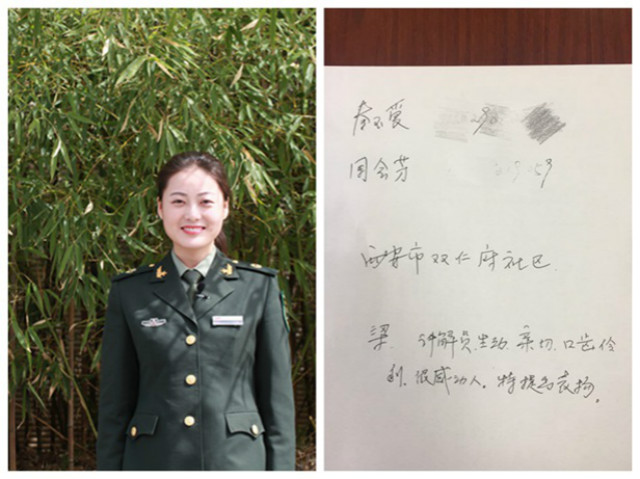 周会芳
西安市双仁府社区
梁 讲解员生动、亲切、口齿伶
利、很感动人。特提名表扬。